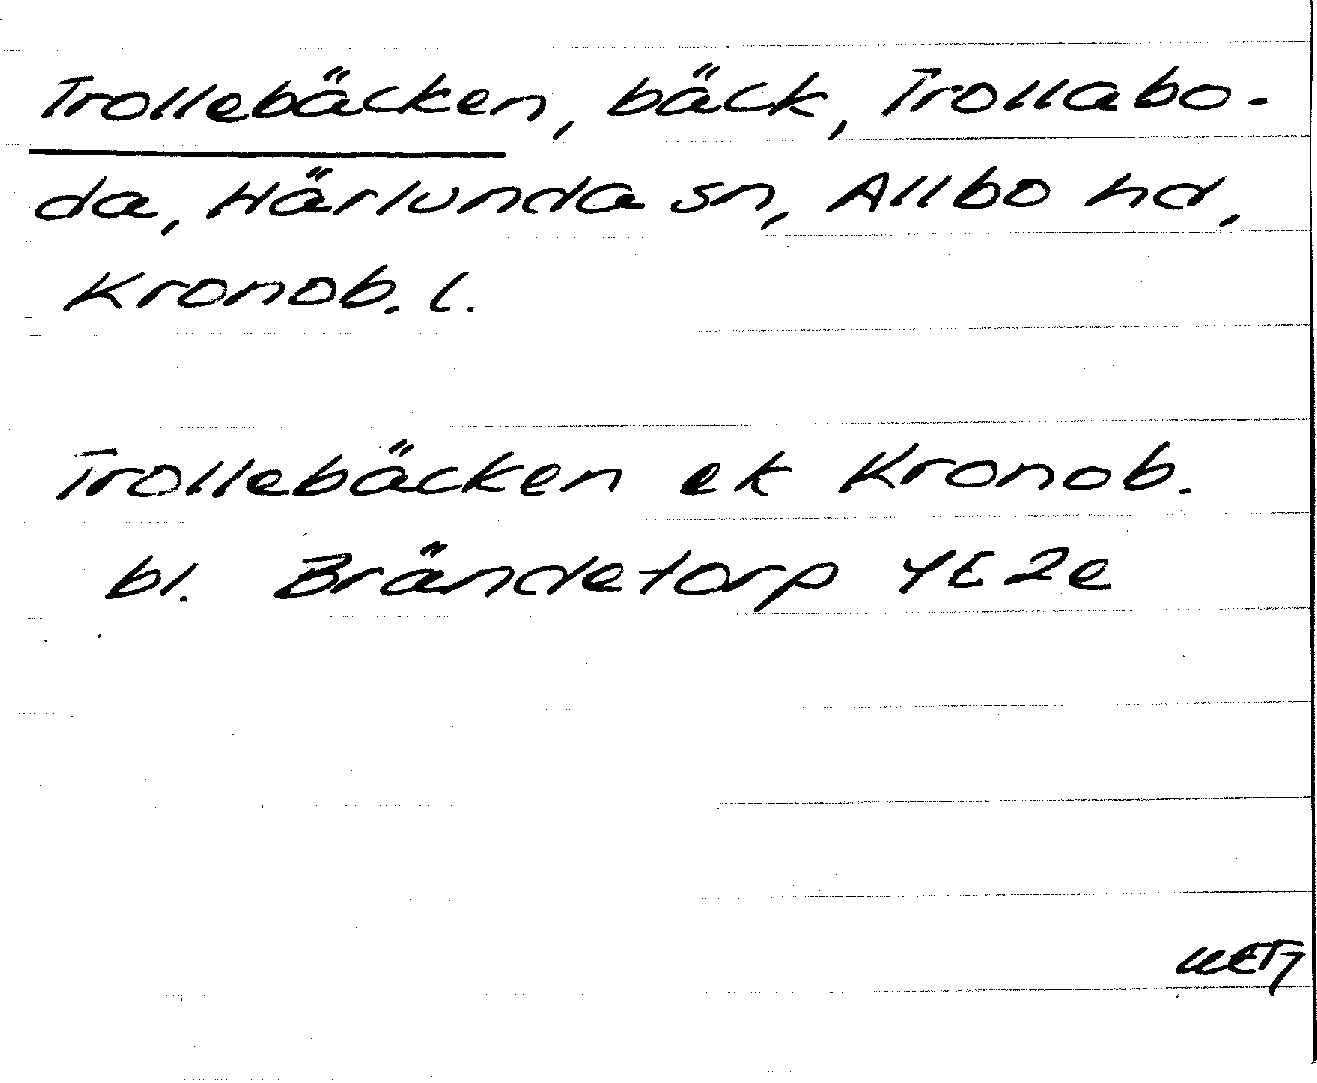 Trollebäcken, bäck, Trollabo-
da, Härlunda sn, Allbo hd,
Kronob. l.
Trollebäcken ek Kronob.
bl. Brändetorp 4E2e